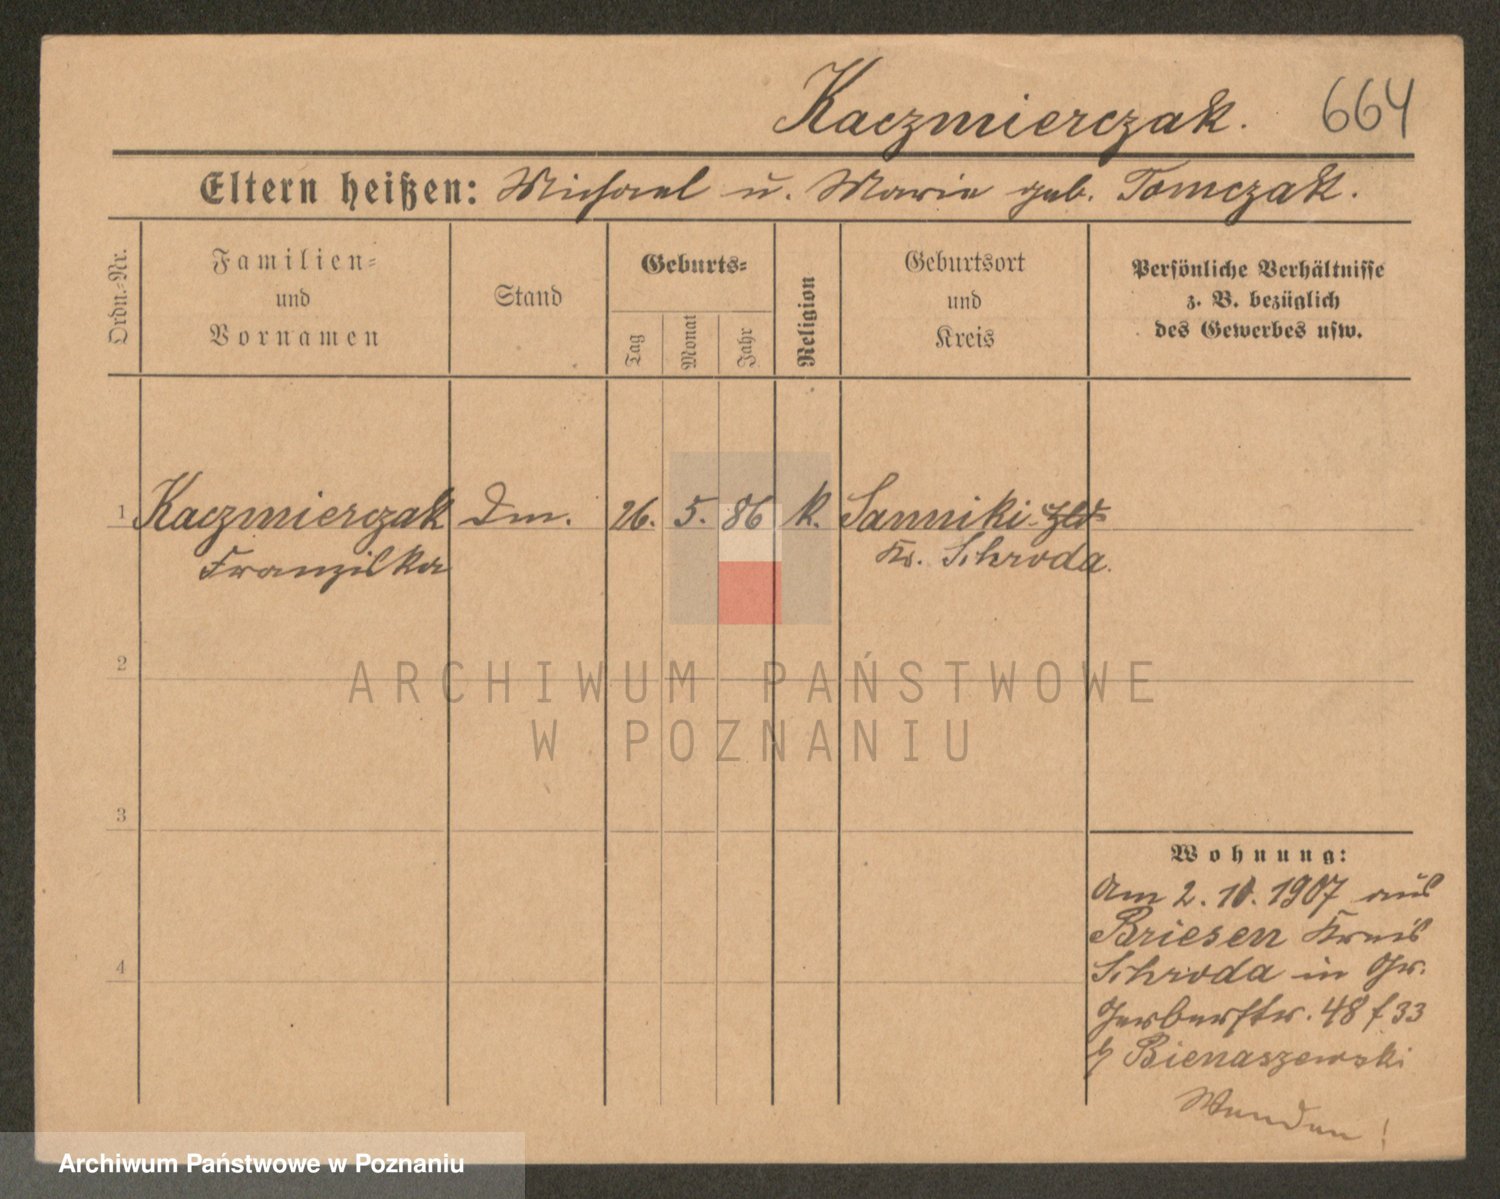 Kaczmierczak. 664
Eltern heißen: Michael u. Marie geb. Tomczak.
Ordn.-Nr.
Familien-
und
Vornamen
Stand
Geburts-
Tag
Monat
Jahr
Religion
Geburtsort
und
Kreis
Persönliche Verhältnisse
z. B. bezüglich
des Gewerbes usw.
1 Kaczmierczak Dm. 26. 5. 86 k. Sanniki
Franziska Kr. Schroda.
2
ARCHIWUM PAŃSTWOWE
W POZNANIU
3
Wohnung:
Am 2. 10. 1907 aus
Briesen Kreis
4
Schroda in Gr.
Gerberstr. 48 f 33
b/ Bienaszewski
Wenden!
Archiwum Państwowe w Poznaniu